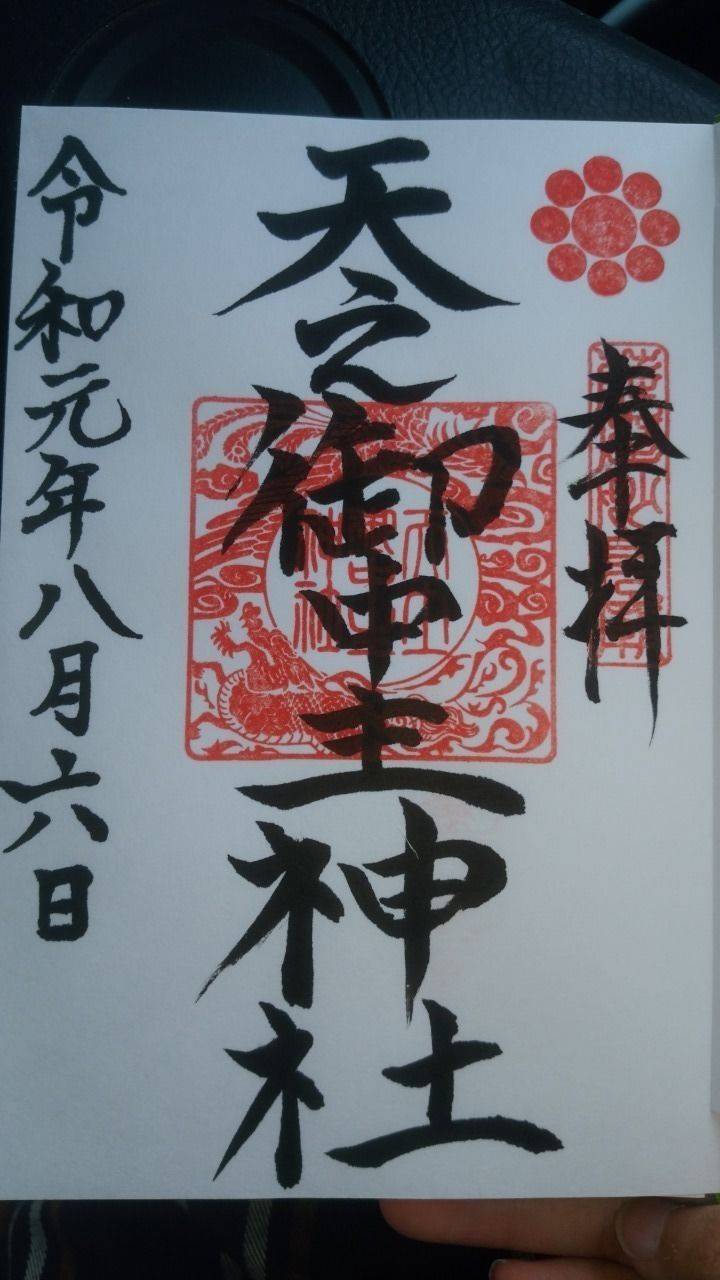 奉拝
天之御中主神社
令和元年八月六日